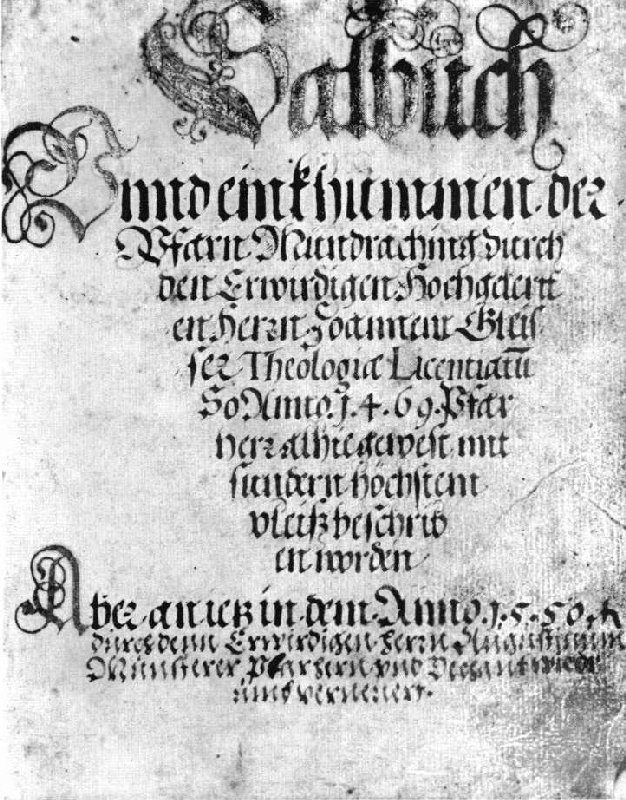 Salbuch
Vnnd einkhummen der
Pfarn Mundraching durch
den Erwirdigen Hochgelertt
en Herrn Joannem Gleis
ser Theologiæ Licentiatū
So Anno. 1.4.69. Pfar
herr alhie gewest mit
sundern höchstem
vleiß beschrib
en worden
Aber an ietz in dem Anno. 1.5.50.
durch denn Erwirdigen herrn Augustinum
Münsterer Pfarhern vnd Dechant wider
umb verneuert.